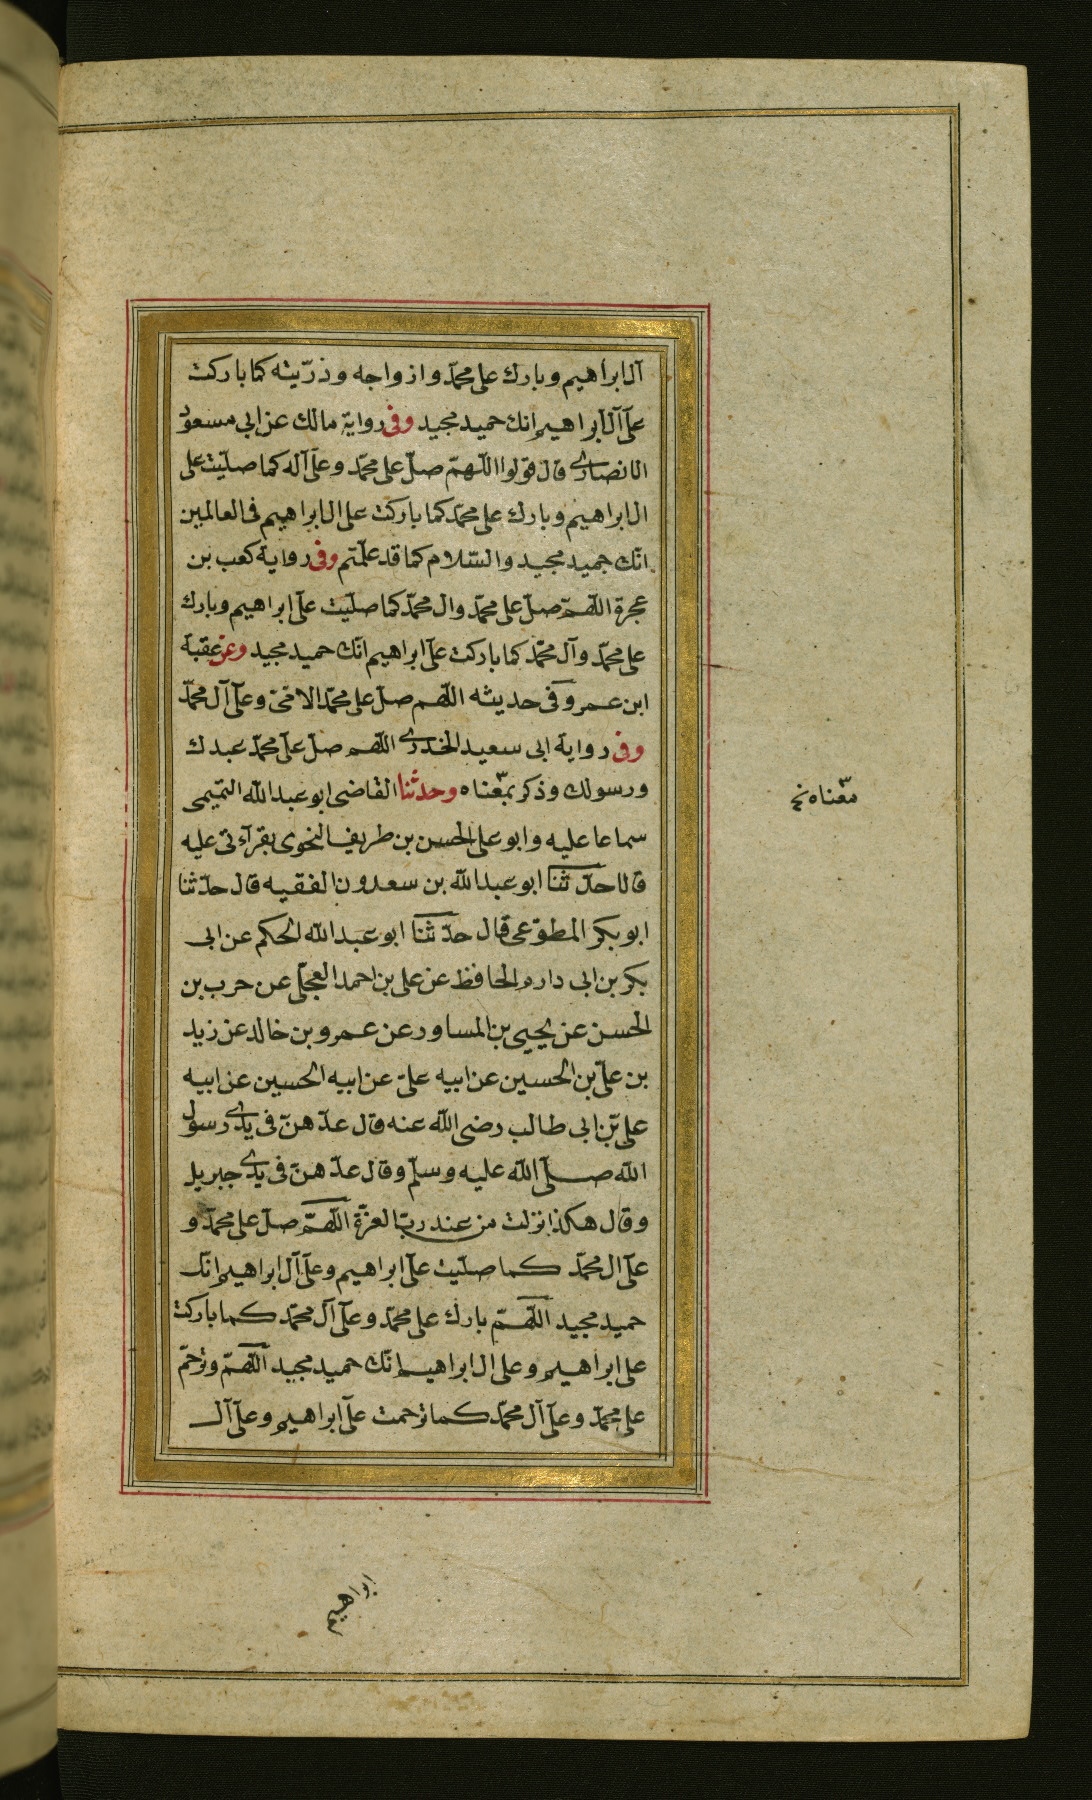 آل ابراهيم وبارك على محمّد وازواجه وذرّيته كما باركت
على آل ابراهيم انك حميد مجيد وفى رواية مالك عن ابى مسعود
الانصارى قال قولوا اللّهمّ صلّ على محمّد وعلى آله كما صلّيت على
ال ابراهيم وبارك على محمّد كما باركت على ال ابراهيم فى العالمين
انّك حميد مجيد والسّلام كما قد علّمتم وفى رواية كعب بن
عجرة اللّهمّ صلّ على محمّد وال محمّد كما صلّيت على ابراهيم وبارك
على محمّد وآل محمّد كما باركت على ابراهيم انّك حميد مجيد وعن عقبة
ابن عمرو فى حديثه اللّهم صلّ على محمّد الامّىّ وعلى آل محمّد
وفى رواية ابى سعيد الخدرى اللّهم صلّ على محمّد عبدك
ورسولك وذكر بمعّناه وحدثنا القاضى ابو عبد الله التميمى
سماعا عليه وابو على الحسن بن طريف النحوى بقرآءتى عليه
قالا حدّثنا ابو عبد الله بن سعدون الفقيه قال حدّثنا
ابو بكر المطوّعى قال حدّثنا ابو عبد الله الحكم عن ابى
بكر بن ابى دارم الحافظ عن على بن احمد العجلّى عن حرب بن
الحسن عن يحيى بن المساور عن عمرو بن خالد عن زيد
بن علىّ بن الحسين عن ابيه علىّ عن ابيه الحسين عن ابيه
على بن ابى طالب رضى الله عنه قال عدّهنّ فى يدى رسول
الله صلّى الله عليه وسلّم وقال عدّهنّ فى يدى جبريل
وقال هكذا نزلت من عند ربّ العزّة اللّهمّ صلّ على محمّد و
على ال محمّد كما صلّيت على ابراهيم وعلى آل ابراهيم انّك
حميد مجيد اللّهمّ بارك على محمّد وعلى آل محمّد كما باركت
على ابراهيم وعلى ال ابراهيم انّك حميد مجيد اللّهمّ وترحّم
على محمّد وعلى آل محمّد كما ترحمت على ابراهيم وعلى آل
معّناه نخ
ابراهيم